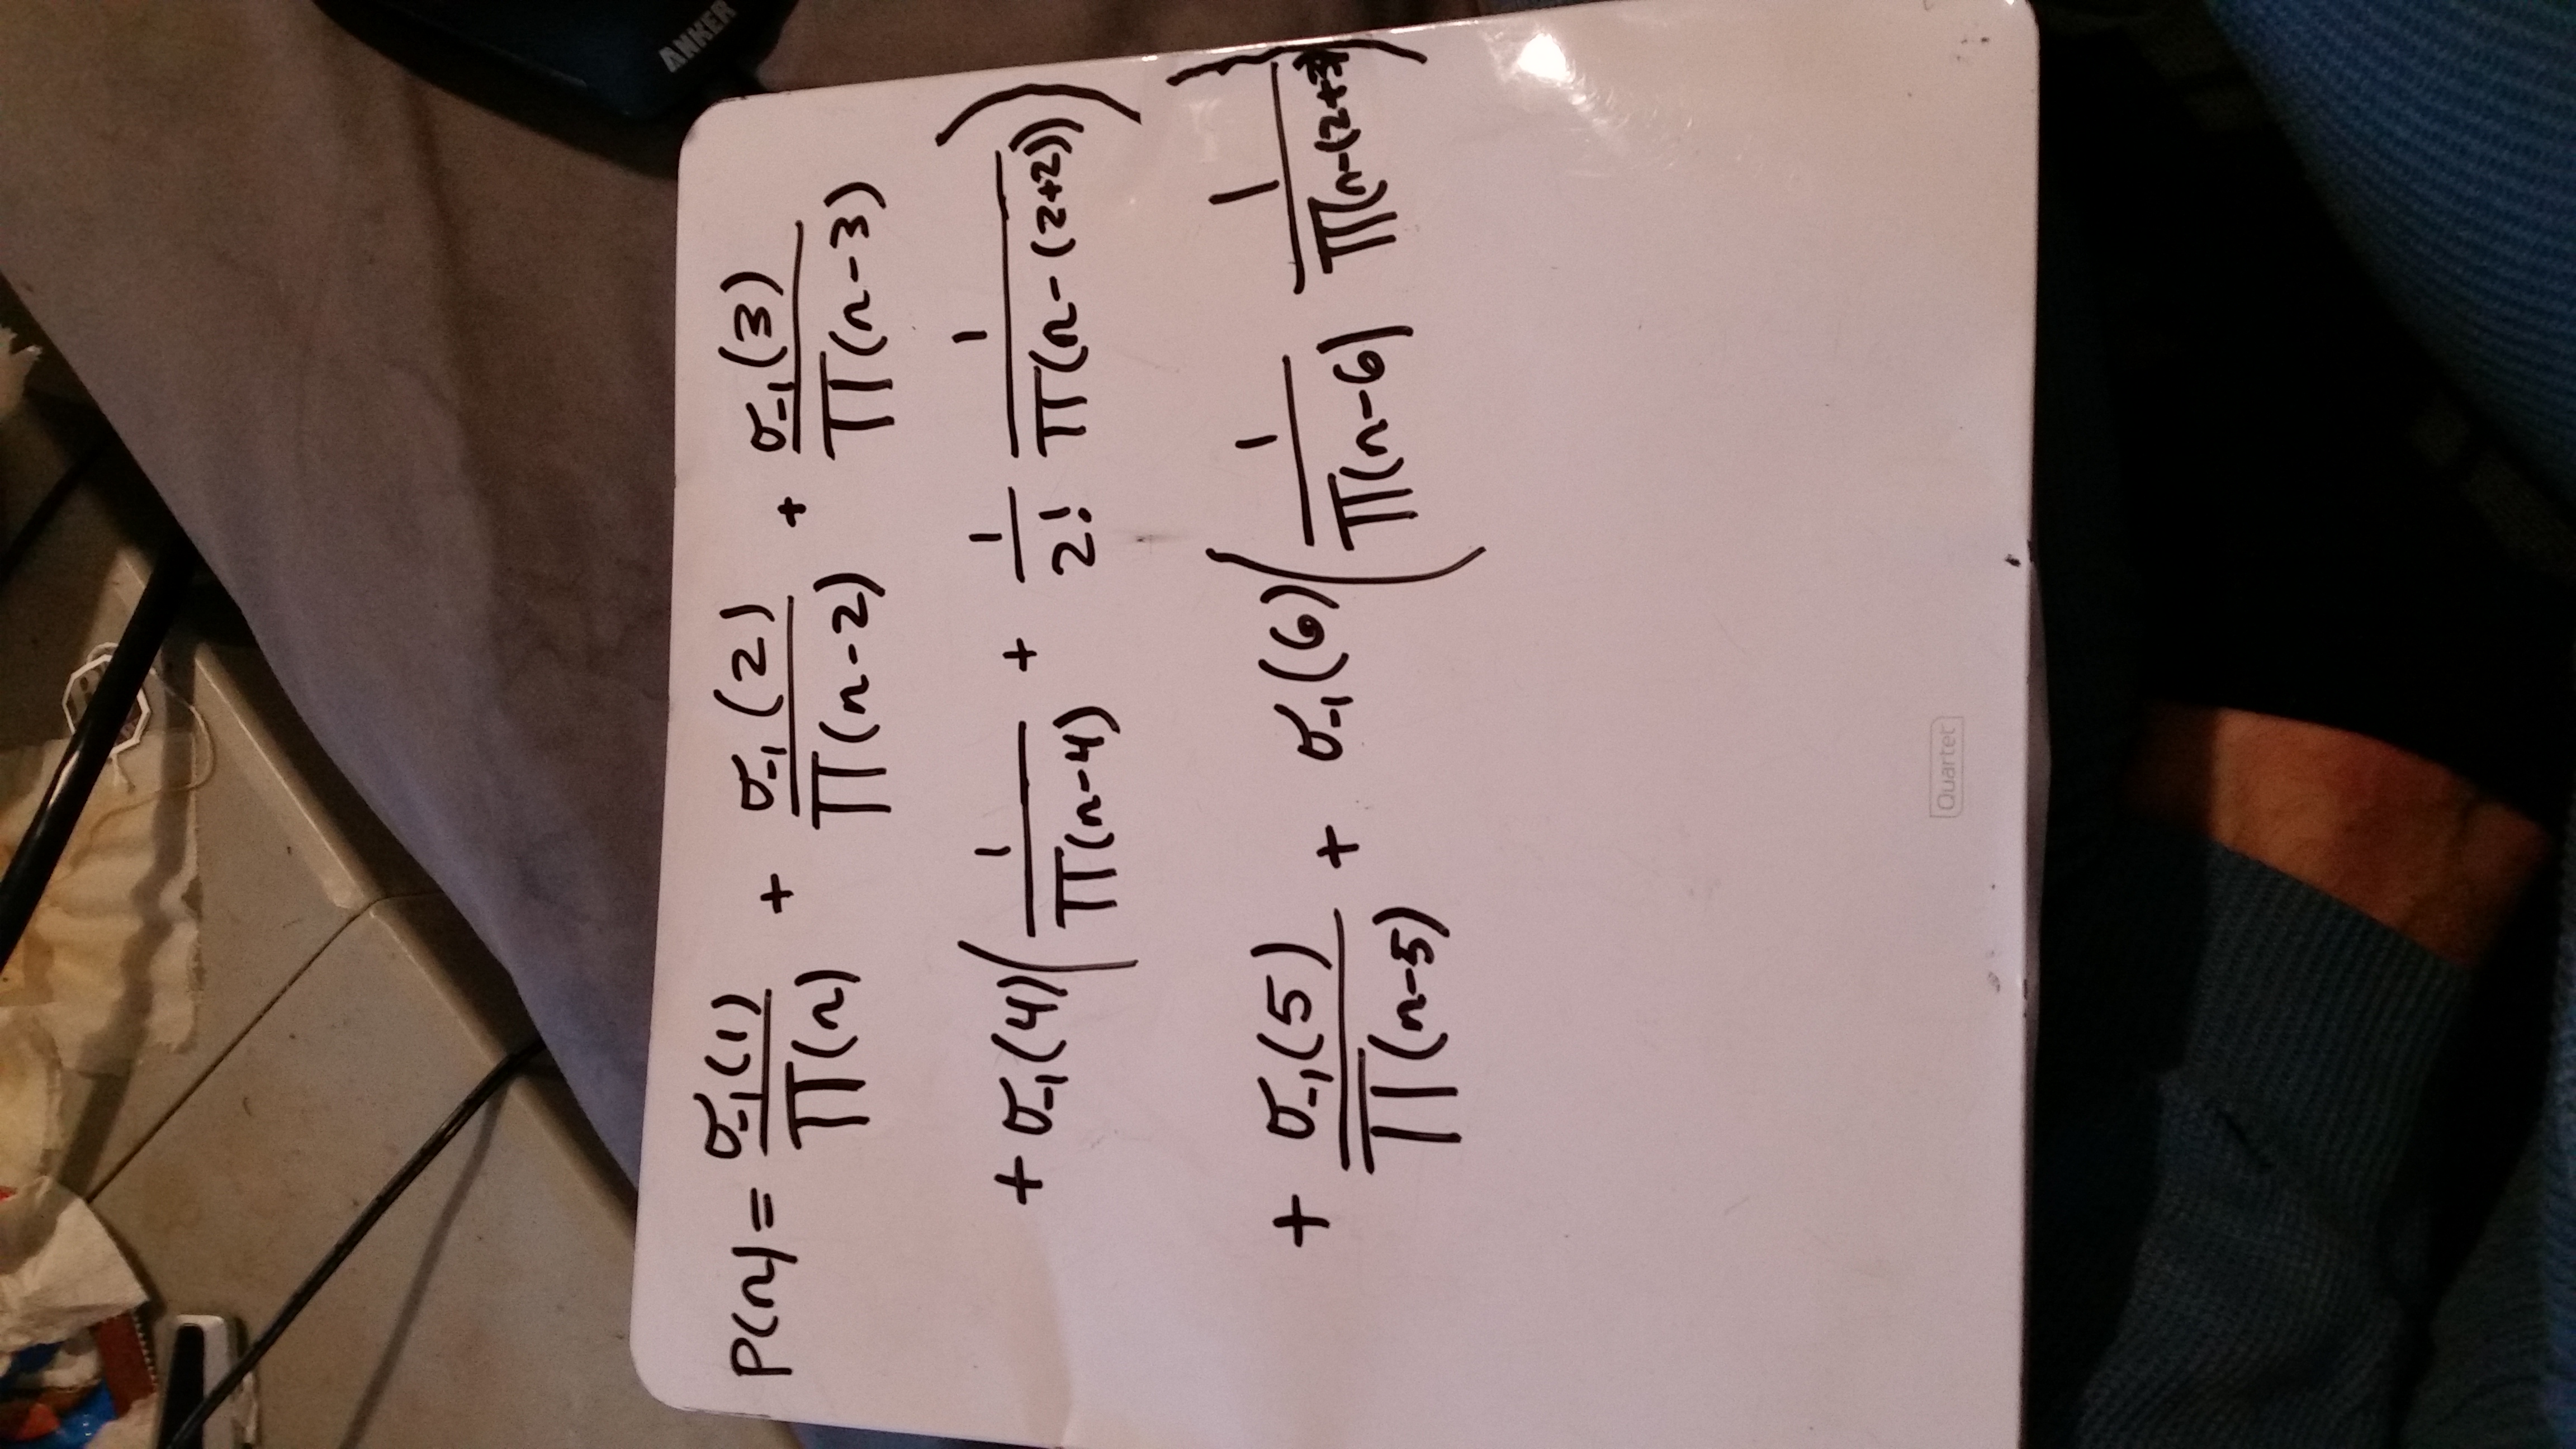 ANKER
P(n) = σ₋₁(1)/∏(n) + σ₋₁(2)/∏(n-2) + σ₋₁(3)/∏(n-3)
+ σ₋₁(4)(1/∏(n-4) + 1/2! 1/∏(n-(2+2)))
+ σ₋₁(5)/∏(n-5) + σ₋₁(6)(1/∏(n-6) 1/∏(n-(2+3))
Quartet